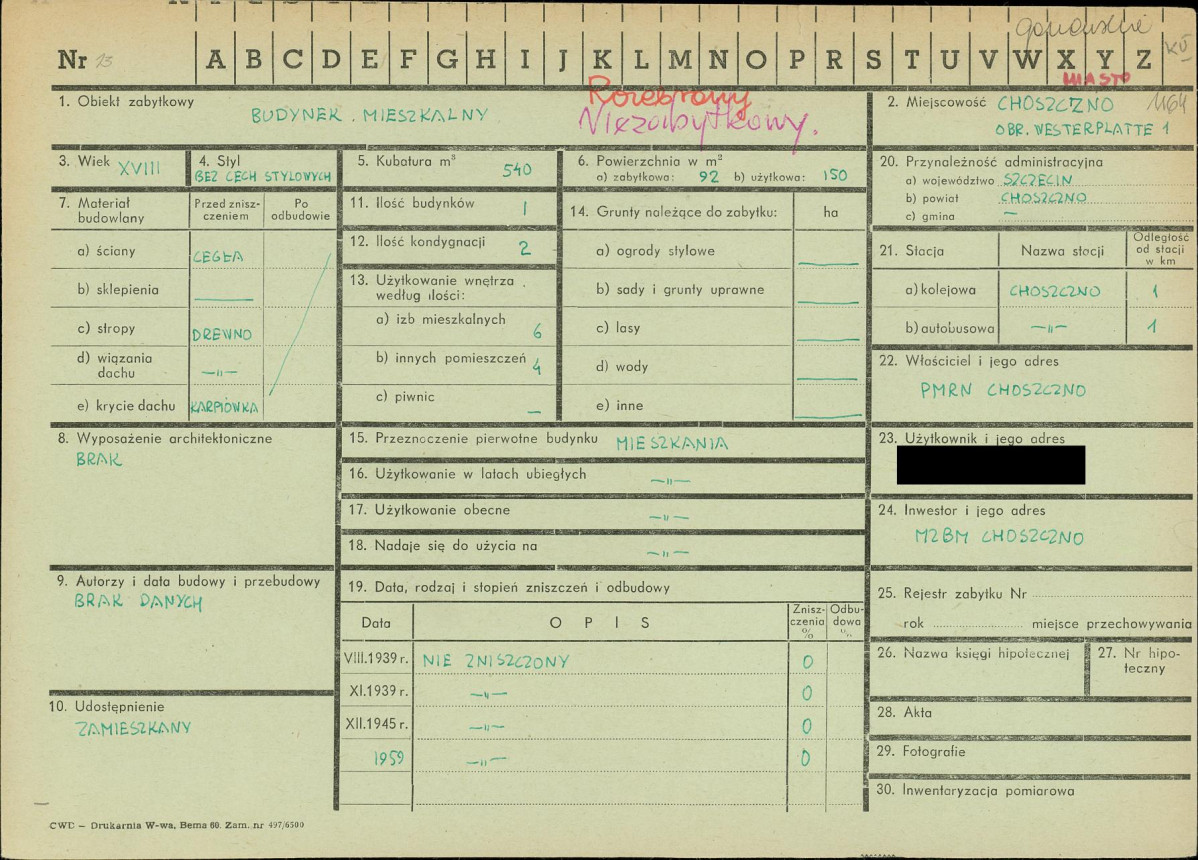 Nr 13 A B C D E F G H I J K L M N O P R S T U V W X Y Z
MIASTO
1. Obiekt zabytkowy
BUDYNEK MIESZKALNY
Rozebrany
Niezabytkowy.
2. Miejscowość CHOSZCZNO 1164
OBR. WESTERPLATTE 1
3. Wiek XVIII
4. Styl
BEZ CECH STYLOWYCH
5. Kubatura m³ 540
6. Powierzchnia w m²
a) zabytkowa: 92 b) użytkowa: 150
20. Przynależność administracyjna
a) województwo SZCZECIN
b) powiat CHOSZCZNO
c) gmina —
7. Materiał budowlany
Przed zniszczeniem
Po odbudowie
a) ściany CEGŁA
b) sklepienia —
c) stropy DREWNO
d) wiązania dachu —„—
e) krycie dachu KARPIÓWKA
11. Ilość budynków 1
12. Ilość kondygnacji 2
13. Użytkowanie wnętrza według ilości:
a) izb mieszkalnych 6
b) innych pomieszczeń 4
c) piwnic —
14. Grunty należące do zabytku: ha
a) ogrody stylowe —
b) sady i grunty uprawne —
c) lasy —
d) wody —
e) inne —
21. Stacja Nazwa stacji Odległość od stacji w km
a) kolejowa CHOSZCZNO 1
b) autobusowa —„— 1
22. Właściciel i jego adres
PMRN CHOSZCZNO
8. Wyposażenie architektoniczne
BRAK
15. Przeznaczenie pierwotne budynku MIESZKANIA
16. Użytkowanie w latach ubiegłych —„—
17. Użytkowanie obecne —„—
18. Nadaje się do użycia na —„—
23. Użytkownik i jego adres
24. Inwestor i jego adres
MZBM CHOSZCZNO
9. Autorzy i data budowy i przebudowy
BRAK DANYCH
19. Data, rodzaj i stopień zniszczeń i odbudowy
Data OPIS Zniszczenia % Odbudowa %
VIII.1939 r. NIE ZNISZCZONY 0
XI.1939 r. —„— 0
XII.1945 r. —„— 0
1959 —„— 0
25. Rejestr zabytku Nr
rok miejsce przechowywania
26. Nazwa księgi hipotecznej
27. Nr hipoteczny
10. Udostępnienie
ZAMIESZKANY
28. Akta
29. Fotografie
30. Inwentaryzacja pomiarowa
CWD — Drukarnia W-wa, Bema 60. Zam. nr 497/6500